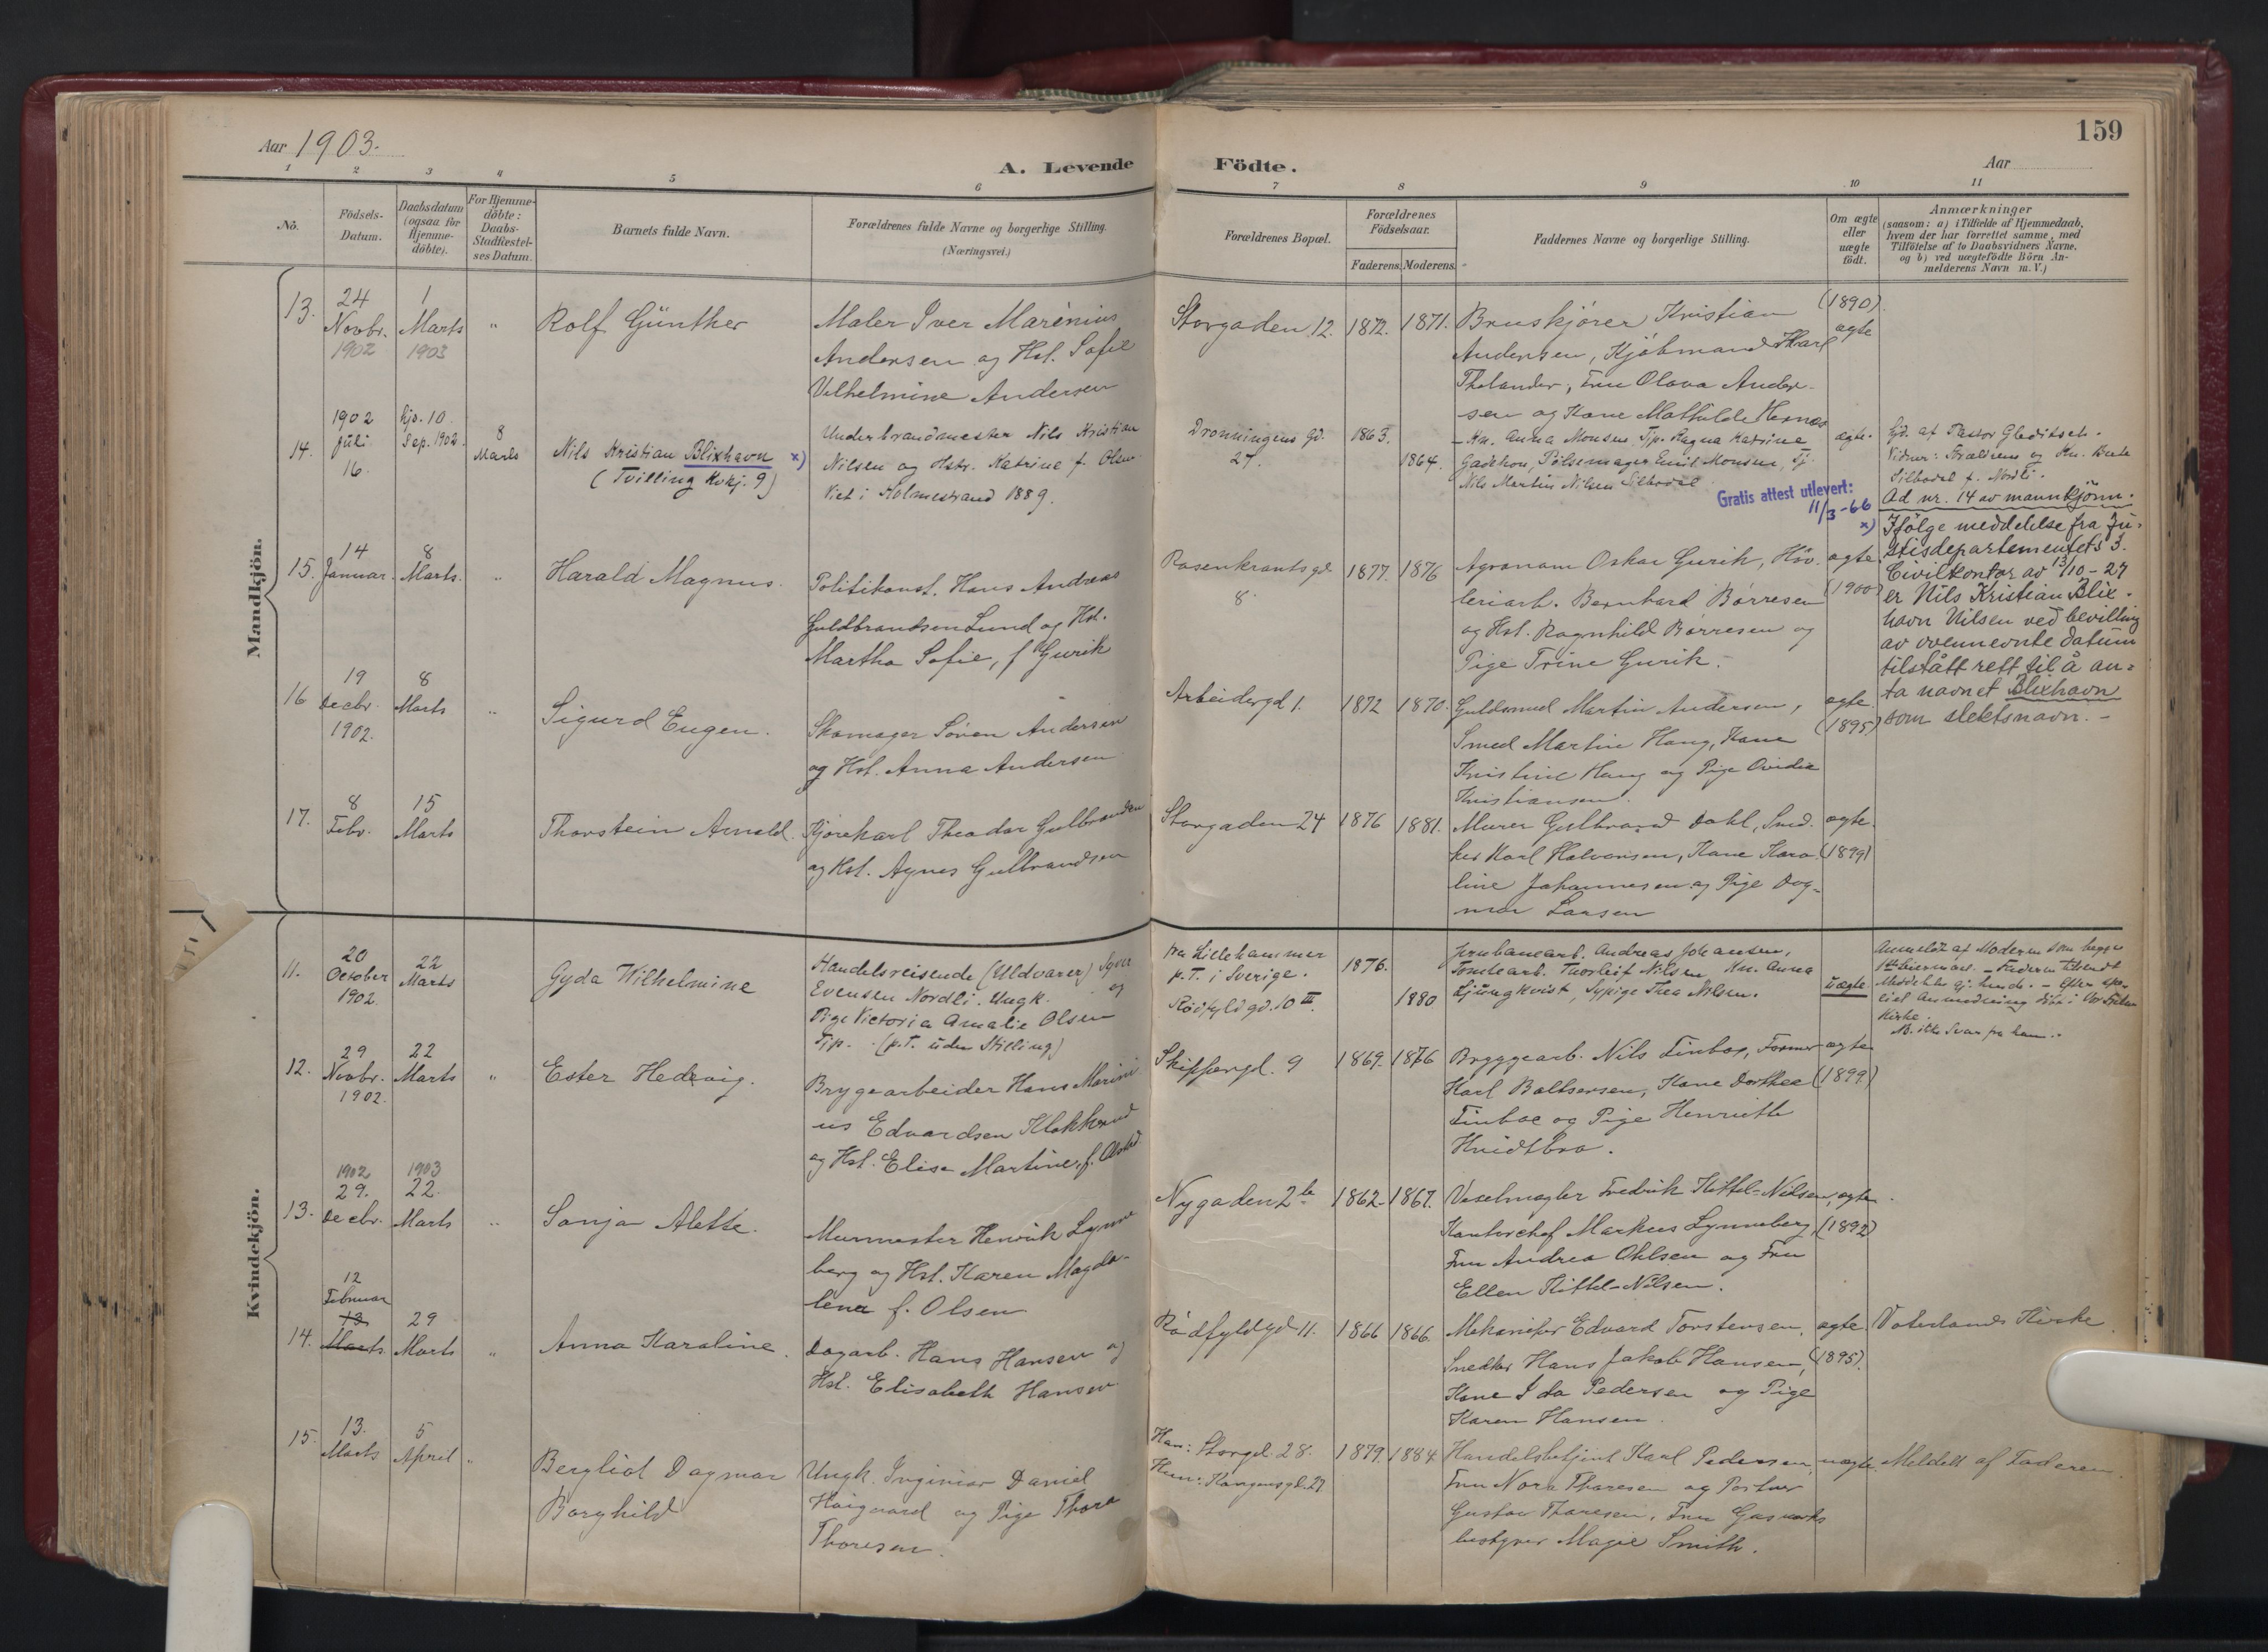 Aar 1903.
A. Levende
Födte.
159
Aar
1 2 3 4 5 6 7 8 9 10 11
No.
Födsels-Datum.
Daabsdatum (ogsaa for Hjemme-döbte).
For Hjemme-döbte: Daabs-Stadfæstel-ses Datum.
Barnets fulde Navn.
Forældrenes fulde Navne og borgerlige Stilling.
(Næringsvei.)
Forældrenes Bopæl.
Forældrenes Födselsaar.
Faderens. Moderens.
Faddernes Navne og borgerlige Stilling.
Om ægte eller uægte födt.
Anmærkninger
(saasom: a) i Tilfælde af Hjemmedaab,
hvem der har forrettet samme, med
Tilföielse af to Daabsvidners Navne,
og b) ved uægtefödte Börn An-
melderens Navn m. V.)
Mandkjön.
13.
24 Novbr. 1902
1 Marts 1903
"
Rolf Günther
Maler Iver Marénius
Andersen og Hst. Sofie
Vilhelmine Andersen
Storgaden 12.
1872. 1871.
Bruskjører Kristian
Andersen, Kjøbmand Karl
Thelander, Fru Olava Ander-
sen og Kone Mathilde Hernæs
(1890)
ægte
14.
1902 Juli 16.
hjd. 10. Sep. 1902.
8 Marts
Nils Kristian Blixhavn x)
(Tvilling Kvkj. 9)
Underbrandmester Nils Kristian
Nilsen og Hstr. Katrine f. Olsen
Viet i Holmestrand 1889.
Dronningens gd.
27.
1863. 1864.
Kn. Anna Monsen, Tjp. Ragna Katrine
Pølsemager Emil Monsen, Tj.
Nils Martin Nilsen Silbodal
ægte.
Hjd. af Pastor Gleditsch.
Vidner: Forældrene og Kn. Berte
Silbodal f. Nordli.
Gratis attest utlevert:
11/3-66
Ad nr. 14 av mannkjønn.
x) Ifölge meddelelse fra Ju-
stisdepartementets 3.
Civilkontor av 13/10-27
er Nils Kristian Blix-
havn Nilsen ved bevilling
av ovennevnte datum
tilstått rett til å an-
ta navnet Blixhavn
som slektsnavn. -
15.
14 Januar.
8 Marts.
"
Harald Magnus.
Politikonst. Hans Andreas
Guldbrandsen Lund og Hst.
Martha Sofie, f Gurik
Rosenkrantsgd.
8.
1877. 1876
Agronom Oskar Gurik,
Bernhard Børresen
og Hst. Ragnhild Børresen og
Pige Trine Gurik.
ægte.
(1900)
16
19 Decbr. 1902.
8 Marts
"
Sigurd Eugen.
Skomager Søren Andersen
og Hst. Anna Andersen
Arbeidergd 1.
1872 1870.
Guldsmed Martin Andersen,
Smed Martin Haug, Kone
Kristine Haug og Pige Ovidia
Kristiansen.
ægte.
(1895)
17.
8 Febr.
15 Marts
Thorstein Arnold.
Kjørekarl Theodor Gulbrandsen
og Hst. Agnes Gulbrandsen
Storgaden 24
1876 1881.
Murer Gulbrand Dahl, Sned-
ker Karl Halvorsen, Kone Karo-
line Johannesen og Pige Dag-
mar Larsen
ægte.
(1899)
Kvindekjön.
11.
20 October 1902.
22 Marts
Gyda Wilhelmine
Handelsreisende (Uldvarer) Syver
Evensen Nordli. Ungk. og
Pige Victoria Amalie Olsen
Tjp. (p.T. uden Stilling)
fra Lillehammer
p.T. i Sverige.
Rødfyldgd. 10 III.
1876. 1880
Jernbanearb. Andreas Johansen,
Tomtearb. Thorleif Nilsen, Kn. Anna
Ljungkvist, Sypige Thea Nilsen.
uægte
Anmeldt af Moderen som begges
Faderen tilsendt
Kirke.
NB. ikke Svar fra ham.
12.
29 Novbr. 1902.
22 Marts
"
Ester Hedevig.
Bryggearbeider Hans Marini-
us Edvardsen Klokkerud
og Hst. Elise Martine, f. Olstad
Skippergd. 9
1869. 1876
Bryggearb. Nils Finboe, Former
Karl Baltsersen, Kone Dorthea
Finboe og Pige Henriette
Hvidtbro.
ægte
(1899)
13.
1902 29. Decbr.
1903 22 Marts
"
Sonja Alette.
Murmester Henrik Lynne-
berg og Hst. Karen Magda-
lena f. Olsen
Nygaden 2 b
1862. 1867.
Vexelmegler Fredrik Kittel-Nilsen,
Kontorchef Markus Lynneberg,
Fru Andrea Ohlsen og Fru
Ellen Kittel-Nilsen.
ægte.
(1892)
14.
12 Februar
13 Marts
29 Marts
"
Anna Karoline.
Dagarb. Hans Hansen og
Hst. Elisabeth Hansen
Rødfyldgd 11.
1866 1866.
Mekaniker Edvard Torstensen,
Snedker Hans Jakob Hansen,
Kone Ida Pedersen og Pige
Karen Hansen.
ægte.
(1895).
Vaterlands Kirke
15.
13. Marts
5 April
"
Bergliot Dagmar
Borghild
Ungk. Inginiør Daniel
Høigaard og Pige Thora
Thoresen.
Han: Storgd. 28.
Hun: Kongensgd. 27
1879. 1884
Handelsbetjent Karl Pedersen,
Fru Nora Thoresen og Portner
Gustav Thoresen, Fru Gasværks-
bestyrer Magie Smith.
uægte.
Meldt af Faderen.